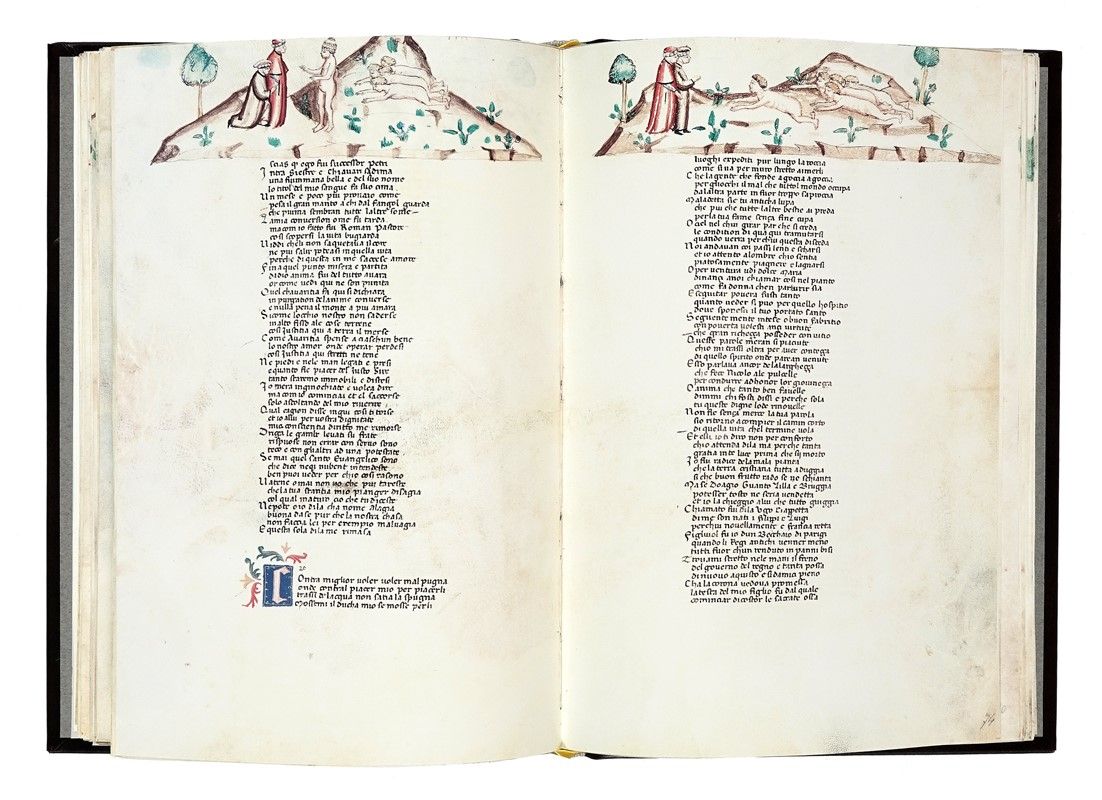 scias q ego fui successor petri
Intra siestre e chiavari sadima
una fiummana bella e del suo nome
lo titol del mio sangue fa sua cima
Un mese e poco piu provaio come
pesa il gran manto a chi dal fango guarda
che piuma sembran tutte laltre some
La mia conversion ome fu tarda
ma como fatto fui Roman Pastore
cosi scopersi la vita bugiarda
Uiddi cheli non saquetava il core
ne piu salir podeasi in quella vita
perche di questa in me saccese amore
Fin a quel punto misera e partita
didio anima fui del tutto avara
or come vedi qui ne son punita
Quel chavaritia fa qui si dichiara
in purgation delanime converse
e nulla pena il monte a piu amara
Si come locchio nostro non saderse
in alto fisso ale cose terrene
cosi justitia qui a terra il merse
Come avaritia spense a ciaschun bene
lo nostro amor onde operar perdesi
cosi justitia qui stretti ne tene
Ne piedi e nele man legati e presi
e quanto fie piacer del justo sire
tanto staremo immobili e distesi
Jo mera inginochiato e volea dire
ma como cominciai et el saccorse
solo ascoltando del mio riverire
Qual cagion disse in qui cosi ti torse
et io allui per vostra dignitate
mia conscientia diritto me rimorse
Driza le gambe levati su frate
rispuose non errar con servo sono
teco e con gli altri ad una potestate
Se mai quel santo Evangelico sono
che dice neqi nubent intendeste
ben puoi veder per chio cosi rasono
Uatene omai non vo che piu tareste
che la tua stantia mio pianger disagia
col qual maturo cio che tu diceste
Nepote o io di la cha nome Alagia
buona da se pur che la nostra chasa
non faccia lei per exempio malvagia
E questa sola di la me rimasa
20
Contra miglior voler voler mal pugna
onde contral piacer mio per piacerli
trassi delacqua non satia la spugna
Mossemi il ducha mio se mosse per li
luoghi expediti pur lungo la roccia
come si va per muro stretto ai merli
Che la gente che fonde a goccia a goccia
per gliocchi il mal che tuttol mondo occupa
da laltra parte in fuor troppo saproccia
Maladetta sie tu anticha lupa
che piu che tutte laltre bestie ai preda
per la tua fame senza fine cupa
O ciel nel chui girar par che si creda
le condition di qua giu tramutarsi
quando verra per chui questa disceda
Noi andavan coi passi lenti e scharsi
et io attento alombre chio sentia
piatosamente piagnere e lagnarsi
O per ventura udi dolce Maria
dinanzi anoi chiamar cosi nel pianto
come fa donna chen parturir sia
E seguitar povera fusti tanto
quanto veder si puo per quello hospitio
dove sponesti il tuo portato santo
Seguente mente intese o buon fabritio
con poverta volesti anzi virtute
che gran richezza posseder con vitio
Queste parole meran si piaciute
chio mi trassi oltra per aver contezza
di quello spirito onde parean venute
Esso parlava ancor dela larghezza
che fece Nicolo ale pulcelle
per condurre ad honor lor giovinezza
O anima che tanto ben favelle
dimmi chi fosti dissi e perche sola
tu queste digne lode rinovelle
Non fie senza merce la tua parola
sio ritorno a compier il camin corto
di quella vita chel termine vola
Et elli io ti diro non per conforto
chio attenda di la ma perche tanta
gratia inte luce prima che sii morto
Jo fui radice dela mala pianta
che la terra cristiana tutta aduggia
si che buon frutto rado se ne schianta
Ma se Doagio Guanto Lilla e Bruggia
potesser tosto ne seria vendetta
et io la chieggio alui che tutto guiggia
Chiamato fui di la Ugo Ciappetta
di me son nati i filippi e Luigi
per chui novellamente e francia retta
Figliuol fu io dun Becchaio di parigi
quando li Regi antichi venner meno
tutti fuor chun renduto in panni bisi
Trovami stretto nele mani il freno
del governo del regno e tanta possa
di nuovo aquisto e si damici pieno
Cha la corona vedova promessa
la testa del mio figlio fu dal quale
cominciar di costor le sacrate ossa
74